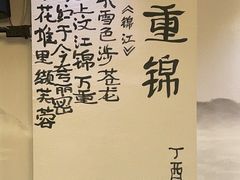 重锦
丁酉
《锦江》
冰雪色涉苍龙
上汶江锦万重
红于今夸丽密
花堆里缬芙蓉